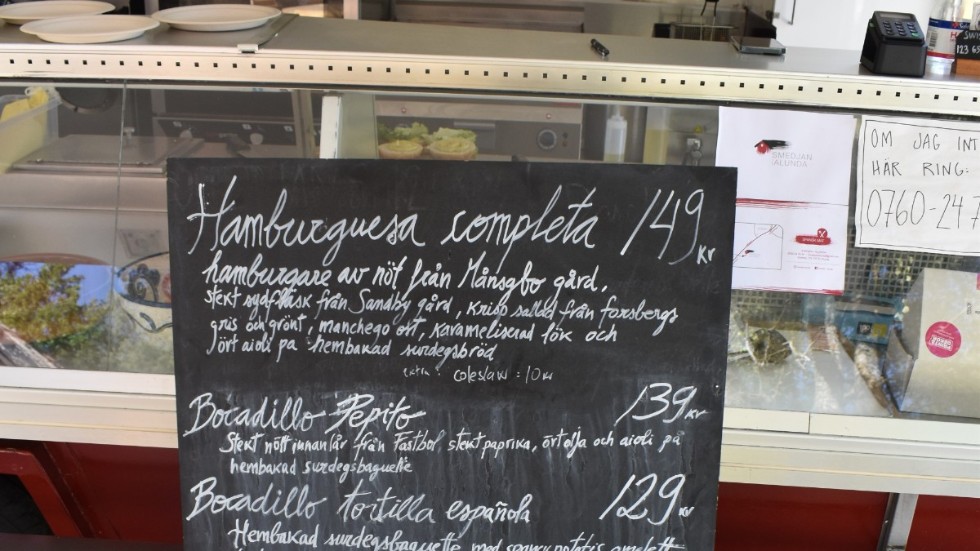 Hamburguesa completa 149 kr
hamburgare av nöt från Månsgbo gård,
stekt sydfläsk från Sandby gård, krisp sallad från forsbergs
gris och grönt, manchego ost, karameliserad lök och
ört aioli på hembakad surdegsbröd
extra: coleslaw: 10 kr
Bocadillo Pepito 139 kr
Stekt nötinnanlår från Fastbol, stekt paprika, örtolja och aioli på
hembakad surdegsbaguette
Bocadillo tortilla española 129 kr
Hembakad surdegsbaguette med
SMEDJAN
ALUNDA
OM JAG INT
HÄR RING:
0760-247